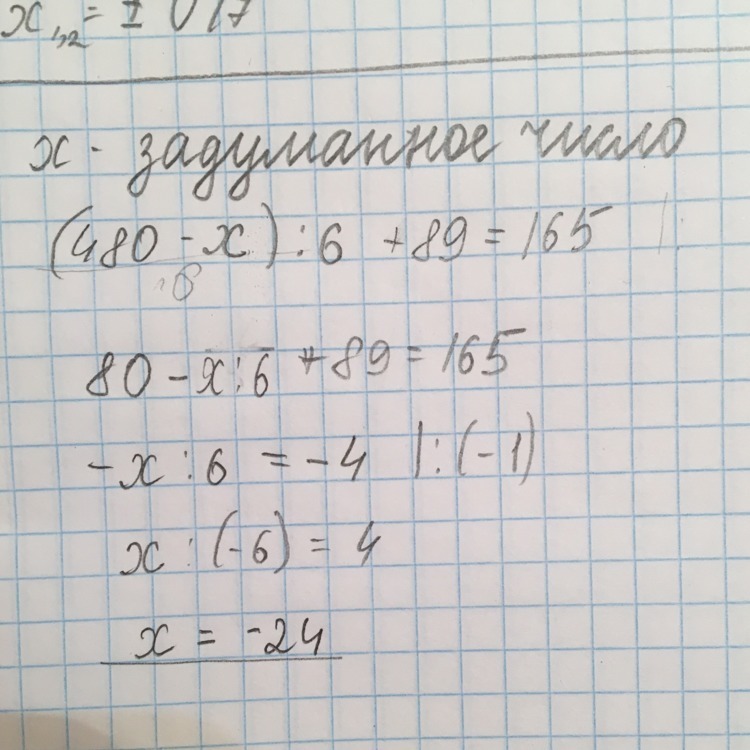 x - задуманное число
(480 - x) : 6 + 89 = 165
80 - x : 6 + 89 = 165
-x : 6 = -4 | : (-1)
x : (-6) = 4
x = -24